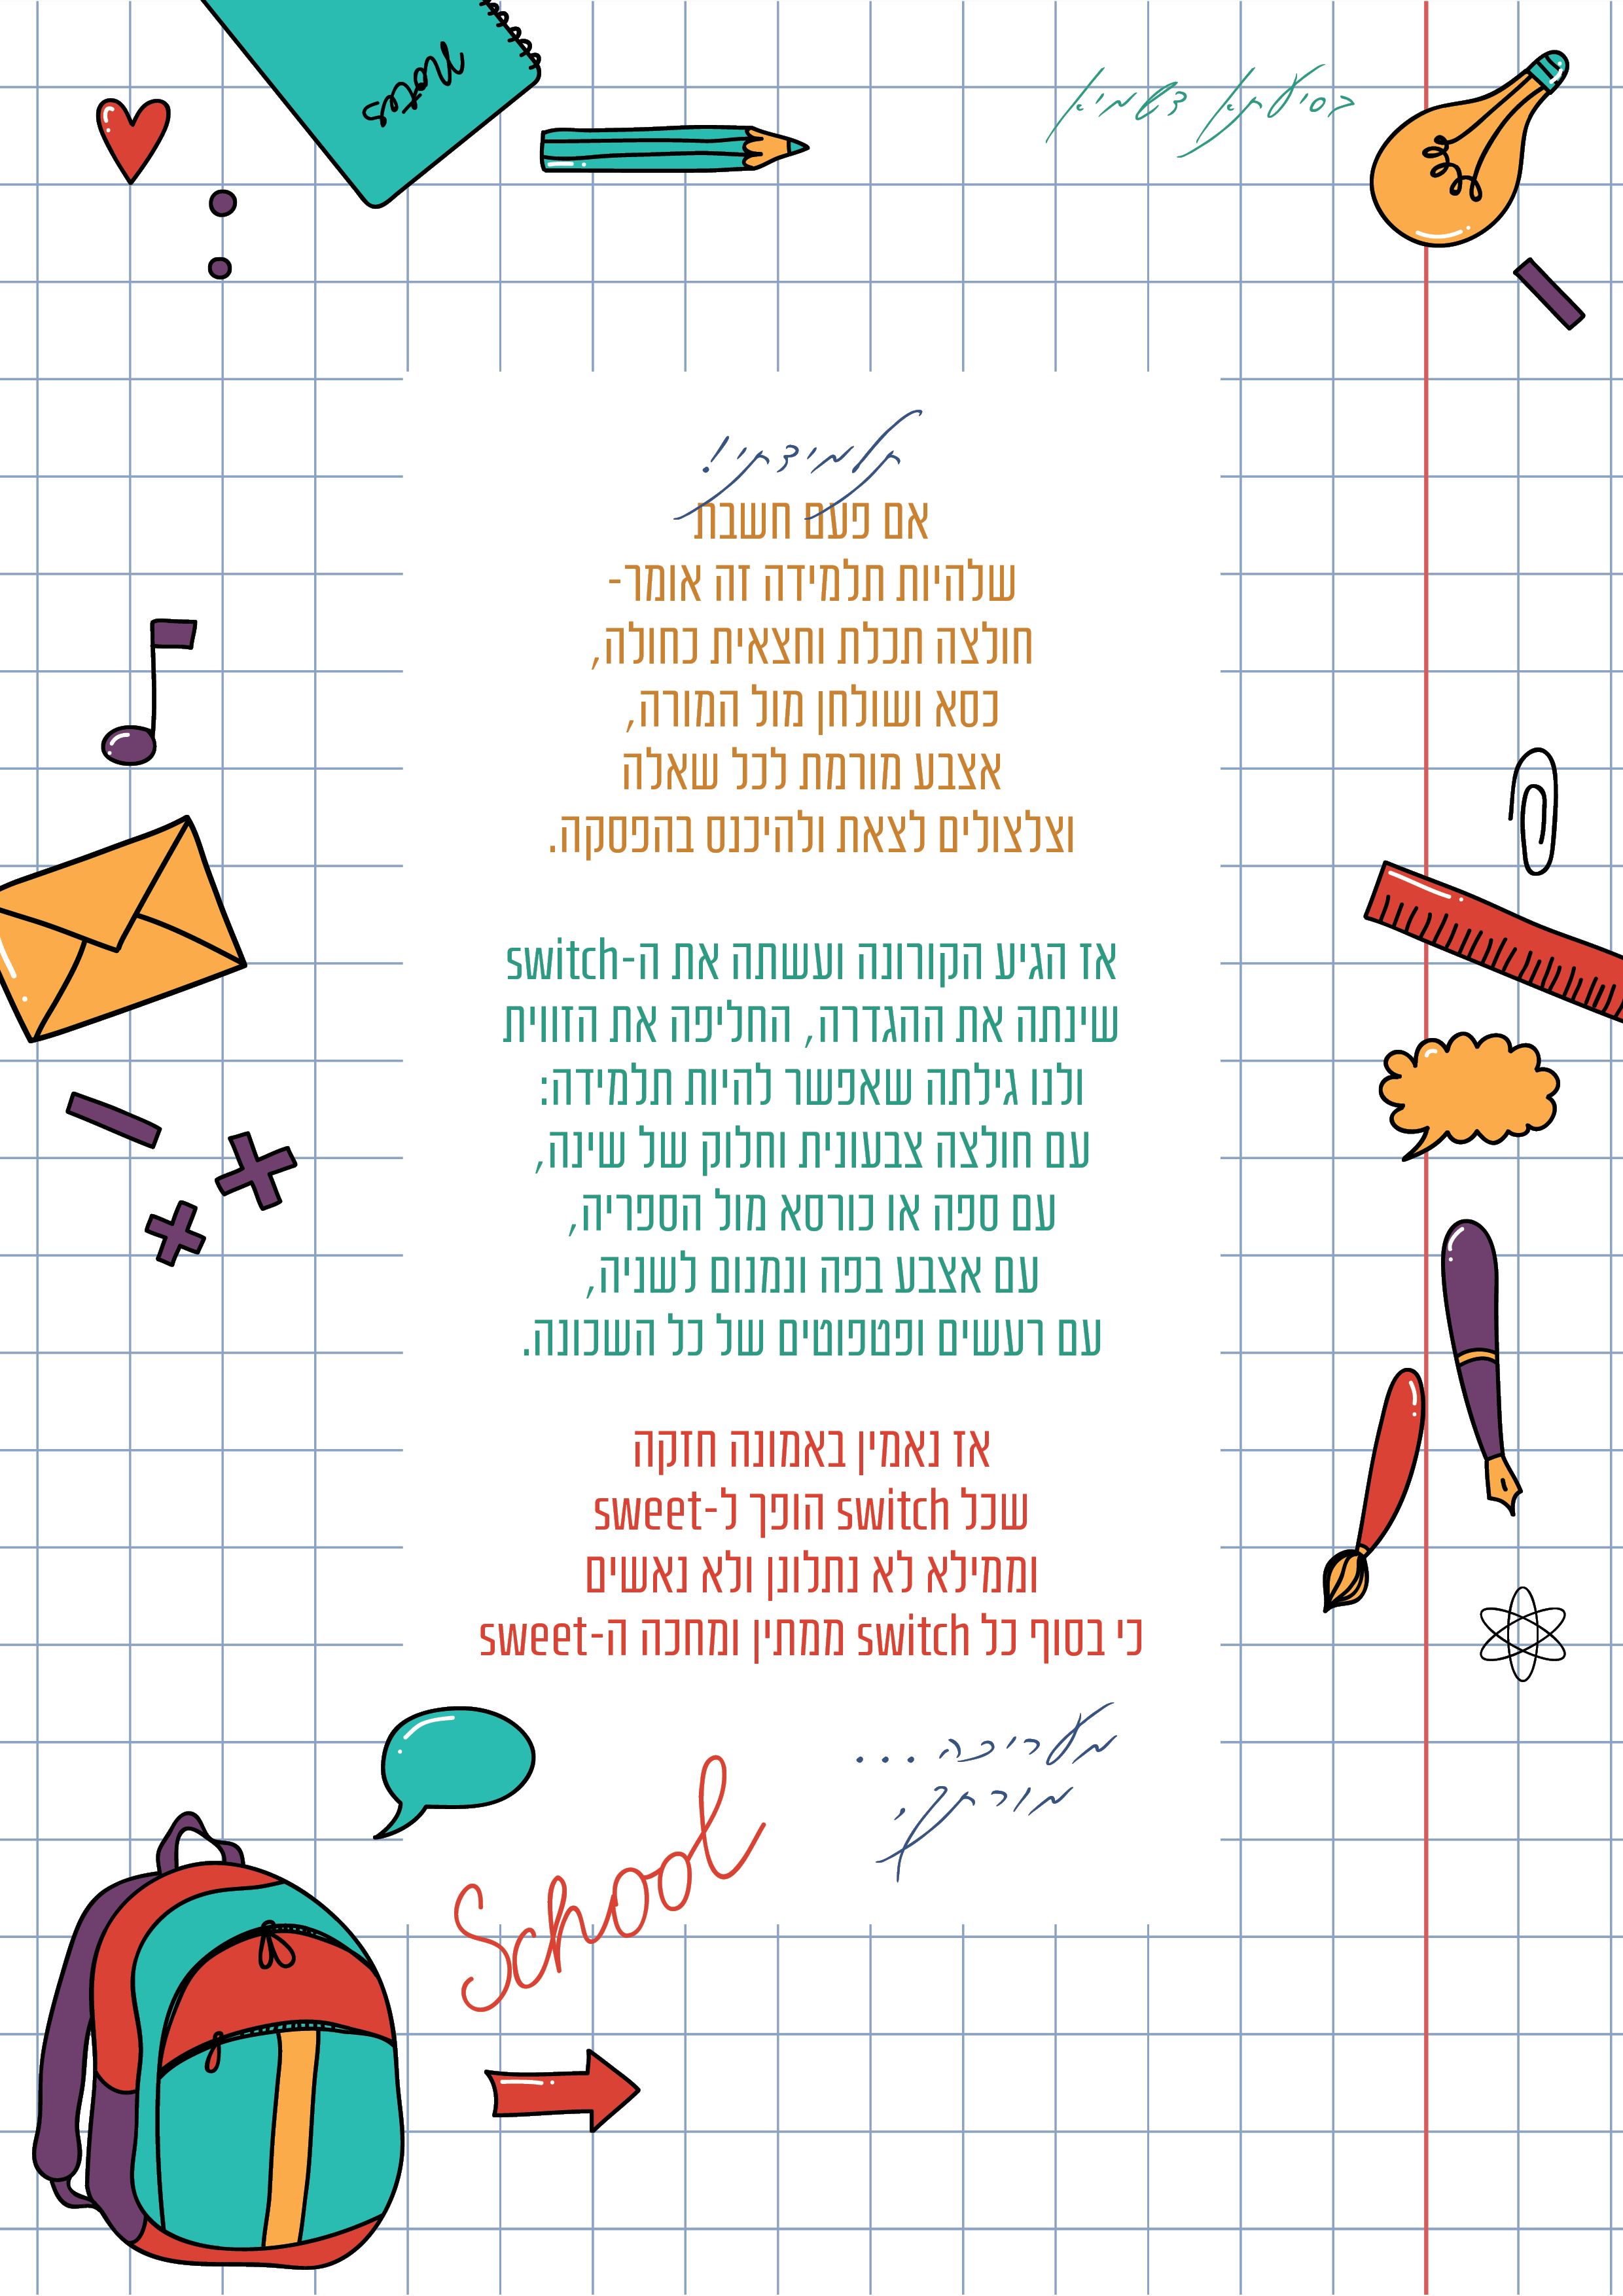 בסיעתא דשמיא
תלמידתי!
אם פעם חשבת
שלהיות תלמידה זה אומר-
חולצה תכלת וחצאית כחולה,
כסא ושולחן מול המורה,
אצבע מורמת לכל שאלה
וצלצולים לצאת ולהיכנס בהפסקה.
אז הגיע הקורונה ועשתה את ה-switch
שינתה את ההגדרה, החליפה את הזווית
ולנו גילתה שאפשר להיות תלמידה:
עם חולצה צבעונית וחלוק של שינה,
עם ספה או כורסא מול הספריה,
עם אצבע בפה ונמנום לשניה,
עם רעשים ופטפוטים של כל השכונה.
אז נאמין באמונה חזקה
שכל switch הופך ל-sweet
וממילא לא נתלונן ולא נאשים
כי בסוף כל switch ממתין ומחכה ה-sweet
מעריכה...
מורתך.
School